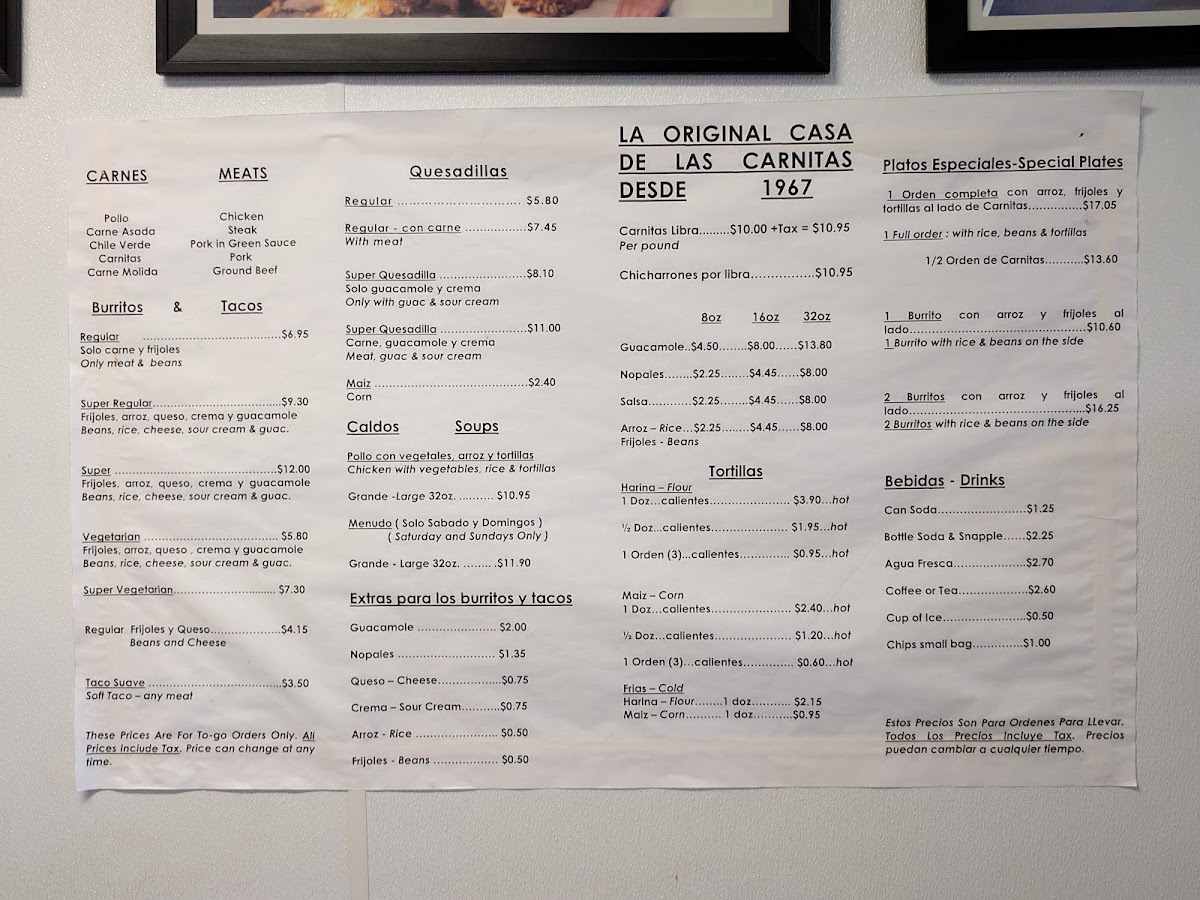 CARNES MEATS
Pollo Chicken
Carne Asada Steak
Chile Verde Pork in Green Sauce
Carnitas Pork
Carne Molida Ground Beef
Burritos & Tacos
Regular ........................................$6.95
Solo carne y frijoles
Only meat & beans
Super Regular.....................................$9.30
Frijoles, arroz, queso, crema y guacamole
Beans, rice, cheese, sour cream & guac.
Super ...............................................$12.00
Frijoles, arroz, queso, crema y guacamole
Beans, rice, cheese, sour cream & guac.
Vegetarian ....................................... $5.80
Frijoles, arroz, queso , crema y guacamole
Beans, rice, cheese, sour cream & guac.
Super Vegetarian.............................. $7.30
Regular Frijoles y Queso.....................$4.15
Beans and Cheese
Taco Suave .......................................$3.50
Soft Taco – any meat
These Prices Are For To-go Orders Only. All
Prices Include Tax. Price can change at any
time.
Quesadillas
Regular .................................. $5.80
Regular - con carne ...................$7.45
With meat
Super Quesadilla .........................$8.10
Solo guacamole y crema
Only with guac & sour cream
Super Quesadilla ..........................$11.00
Carne, guacamole y crema
Meat, guac & sour cream
Maiz .............................................$2.40
Corn
Caldos Soups
Pollo con vegetales, arroz y tortillas
Chicken with vegetables, rice & tortillas
Grande -Large 32oz. .......... $10.95
Menudo ( Solo Sabado y Domingos )
( Saturday and Sundays Only )
Grande - Large 32oz. ........ .$11.90
Extras para los burritos y tacos
Guacamole ....................... $2.00
Nopales ............................ $1.35
Queso – Cheese..................$0.75
Crema – Sour Cream..........$0.75
Arroz - Rice ....................... $0.50
Frijoles - Beans ................... $0.50
LA ORIGINAL CASA
DE LAS CARNITAS
DESDE 1967
Carnitas Libra.........$10.00 +Tax = $10.95
Per pound
Chicharrones por libra..................$10.95
8oz 16oz 32oz
Guacamole..$4.50........$8.00......$13.80
Nopales........$2.25........$4.45......$8.00
Salsa............$2.25........$4.45......$8.00
Arroz – Rice...$2.25........$4.45......$8.00
Frijoles - Beans
Tortillas
Harina – Flour
1 Doz...calientes....................... $3.90...hot
½ Doz...calientes...................... $1.95...hot
1 Orden (3)...calientes.............. $0.95...hot
Maiz – Corn
1 Doz...calientes........................ $2.40...hot
½ Doz...calientes....................... $1.20...hot
1 Orden (3)...calientes.............. $0.60...hot
Frias – Cold
Harina – Flour........1 doz........... $2.15
Maiz – Corn.......... 1 doz...........$0.95
Platos Especiales-Special Plates
1 Orden completa con arroz, frijoles y
tortillas al lado de Carnitas...............$17.05
1 Full order : with rice, beans & tortillas
1/2 Orden de Carnitas...........$13.60
1 Burrito con arroz y frijoles al
lado...................................................$10.60
1 Burrito with rice & beans on the side
2 Burritos con arroz y frijoles al
lado...................................................$16.25
2 Burritos with rice & beans on the side
Bebidas - Drinks
Can Soda..........................$1.25
Bottle Soda & Snapple......$2.25
Agua Fresca.....................$2.70
Coffee or Tea....................$2.60
Cup of Ice........................$0.50
Chips small bag..............$1.00
Estos Precios Son Para Ordenes Para LLevar.
Todos Los Precios Incluye Tax. Precios
puedan cambiar a cualquier tiempo.